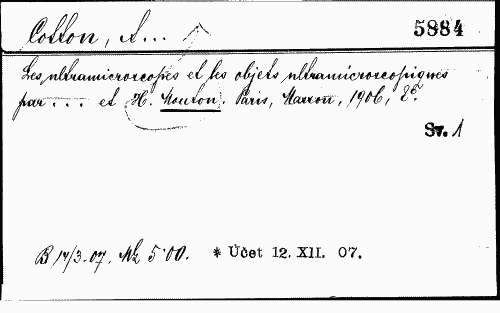 Cotton, A... 5884
Les ultramicroscopes et les objets ultramicroscopiques
par ... et H. Mouton. Paris, Masson, 1906, 8°.
Sv. 1
B 17/3-07. Mk 5·00. * Účet 12. XII. 07.